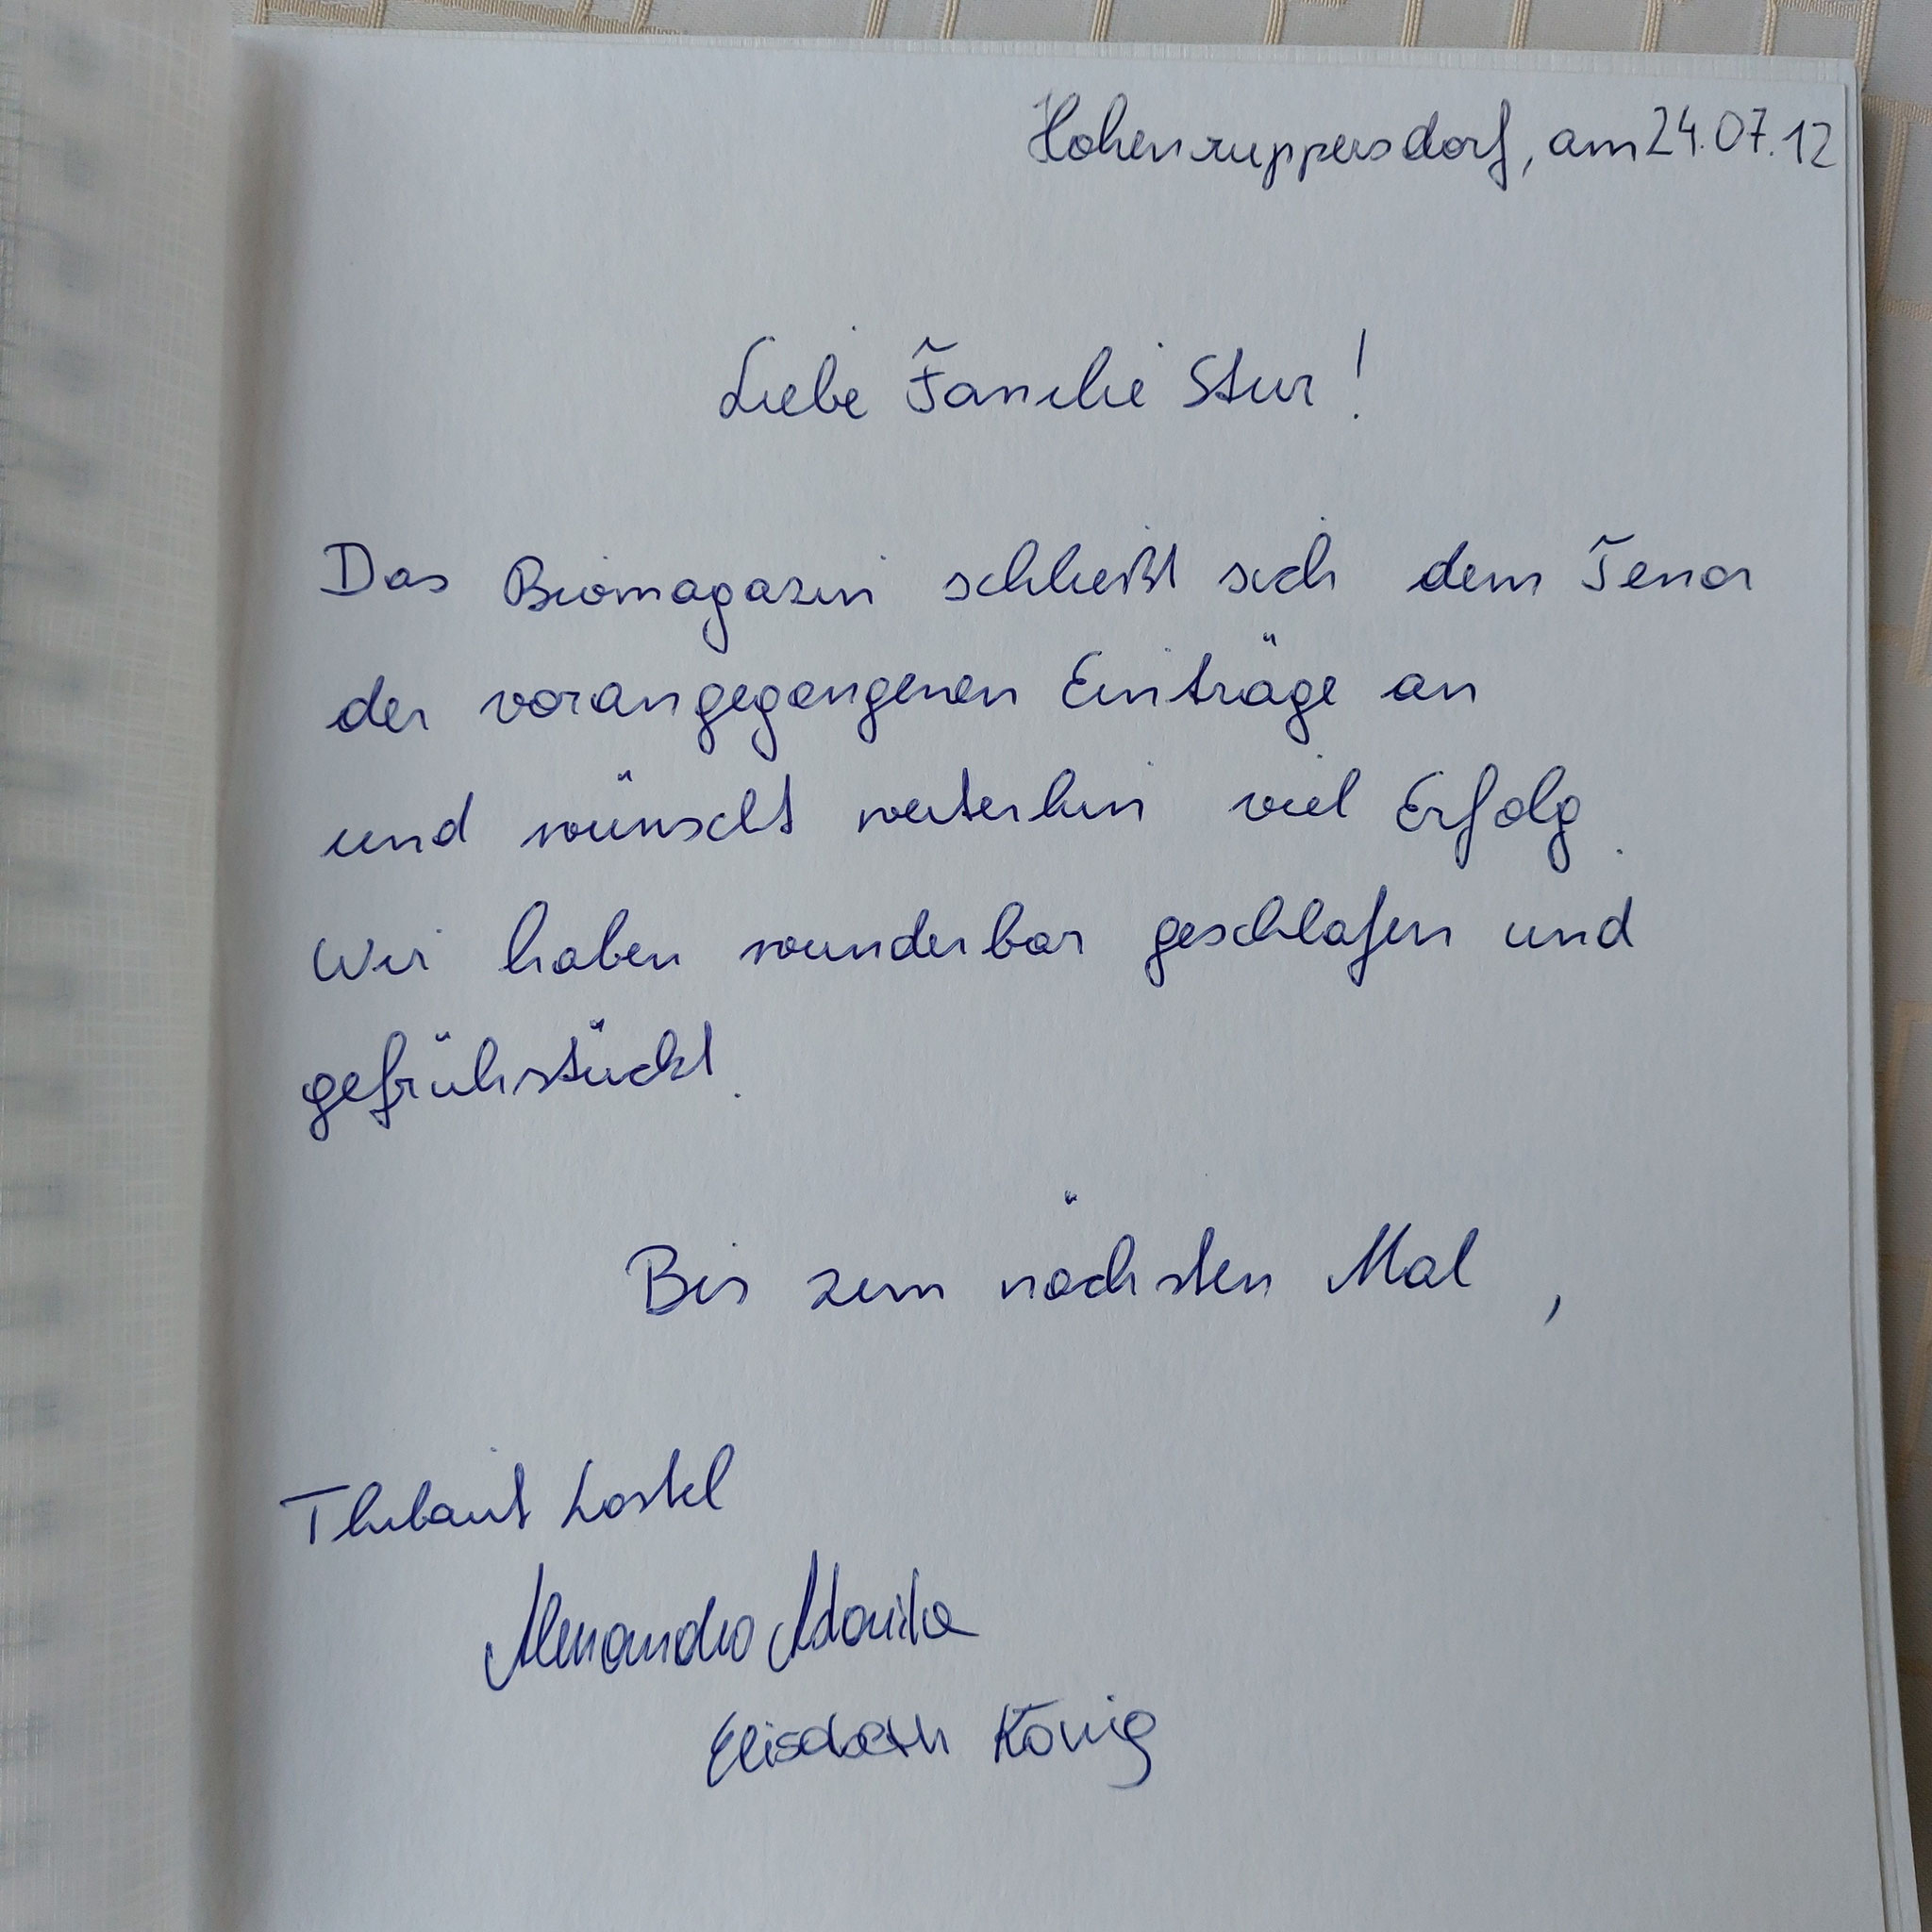 Hohenruppersdorf, am 24.07.12
Liebe Familie Stur!
Das Biomagazin schließt sich dem Tenor
der vorangegangenen Einträge an
und wünscht weiterhin viel Erfolg.
Wir haben wunderbar geschlafen und
gefrühstückt.
Bis zum nächsten Mal,
Thibaut
Elisabeth König